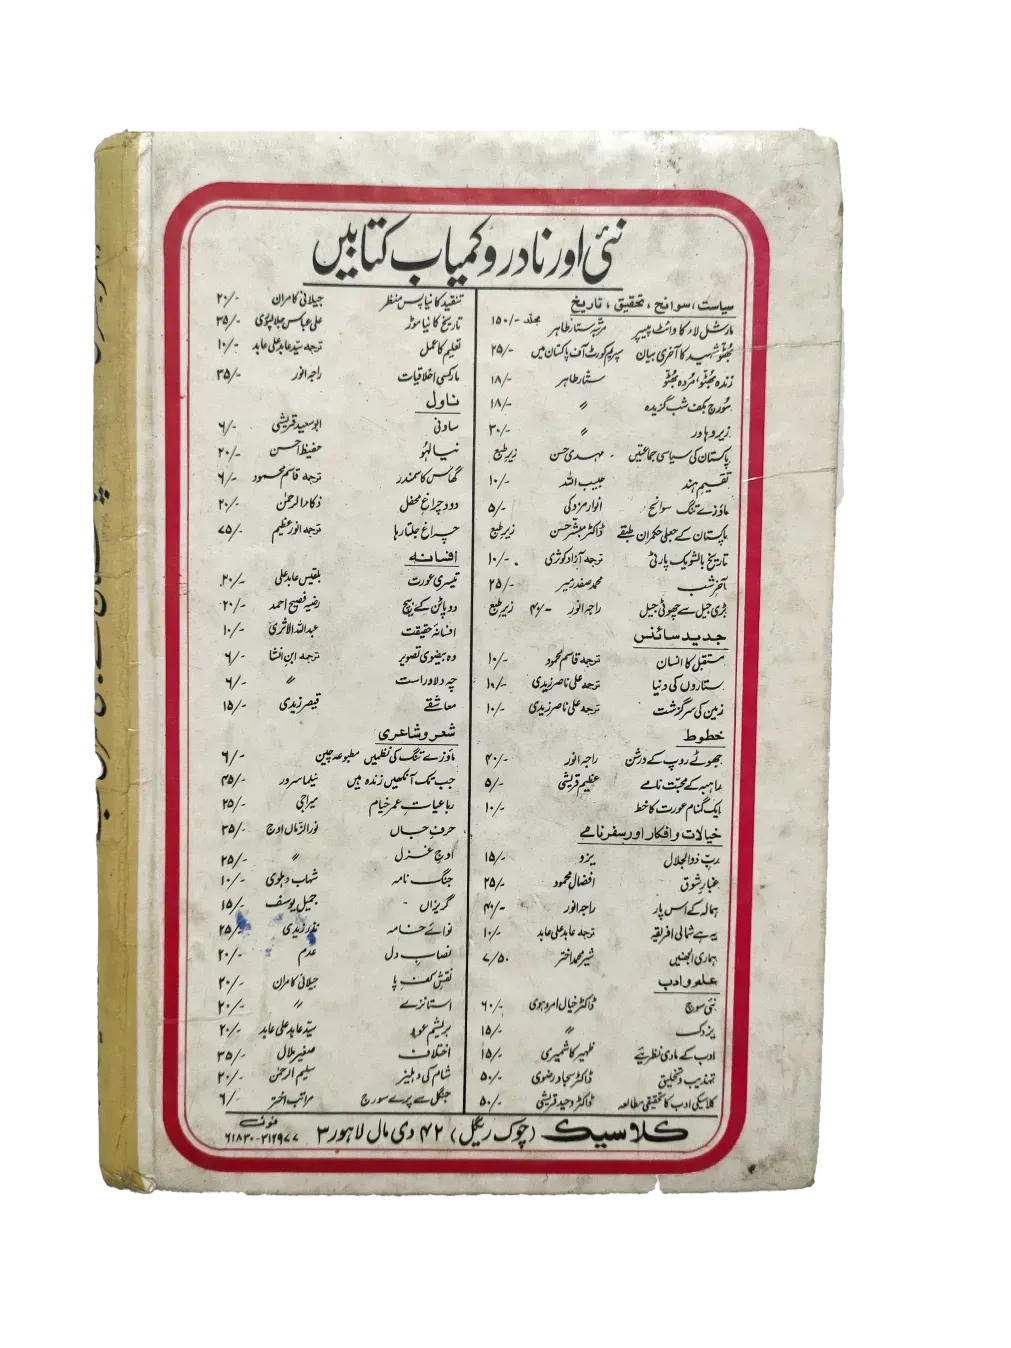 نئی اور نادر و کمیاب کتابیں
سیاست، سوانح، تحقیق، تاریخ
مارشل لاء کا وائٹ پیپر مرتبہ ستار طاہر مجلد ۱۵۰/-
بھٹو شہید کا آخری بیان سپریم کورٹ آف پاکستان میں ۲۵/-
زندہ بھٹو، مردہ بھٹو ستار طاہر ۱۸/-
سورج بکف شب گزیدہ 〃 ۱۸/-
زیر و ہاور 〃 ۳۰/-
پاکستان کی سیاسی جماعتیں مہدی حسن زیر طبع
تقسیم ہند حبیب اللہ ۱۰/-
ماؤزے تنگ سوانح انوار مزدکی ۵/-
پاکستان کے جعلی حکمران طبقے ڈاکٹر مبشر حسن زیر طبع
تاریخ بالشویک پارٹی ترجمہ آزاد کوثری ۱۰/-
آخر شب محمد صفدر میر ۲۵/-
بڑی جیل سے چھوٹی جیل راجہ انور ۴۶/- زیر طبع
جدید سائنس
مستقبل کا انسان ترجمہ قاسم محمود ۱۰/-
ستاروں کی دنیا ترجمہ علی ناصر زیدی ۱۰/-
زمین کی سرگزشت ترجمہ علی ناصر زیدی ۱۰/-
خطوط
جھوٹے روپ کے درشن راجہ انور ۴۰/-
راہبہ کے محبت نامے عظیم قریشی ۵/-
ایک گمنام عورت کا خط ۱۰/-
خیالات و افکار اور سفرنامے
رب ذوالجلال یزو ۱۵/-
غبار شوق افضال محمود ۲۵/-
ہمالہ کے اس پار راجہ انور ۴۰/-
یہ ہے شمالی افریقہ ترجمہ عابد علی عابد ۱۰/-
ہماری الجھنیں شیر محمد اختر ۷/۵۰
علم و ادب
نئی سوچ ڈاکٹر خیال امروہوی ۶۰/-
یزدک 〃 ۱۵/-
ادب کے مادی نظریئے ظہیر کاشمیری ۱۵/-
تہذیب و تخلیق ڈاکٹر سجاد رضوی ۵۰/-
کلاسیکی ادب کا تحقیقی مطالعہ ڈاکٹر وحید قریشی ۵۰/-
تنقید کا نیا پس منظر جیلانی کامران ۲۰/-
تاریخ کا نیا موڑ علی عباس جلالپوری ۳۵/-
تعلیم کا عمل ترجمہ سید عابد علی عابد ۱۰/-
مارکسی اخلاقیات راجہ انور ۳۵/-
ناول
ساونی ابوسعید قریشی ۶/-
نیا لہو حفیظ احسن ۲۰/-
گھاس کا سمندر ترجمہ قاسم محمود ۶/-
دود چراغ محفل ذکاء الرحمٰن ۲۰/-
چراغ جلتا رہا ترجمہ انور عظیم ۷۵/-
افسانہ
تیسری عورت بلقیس عابد علی ۲۰/-
دو پاٹن کے بیچ رضیہ فصیح احمد ۲۰/-
افسانہ حقیقت عبداللہ الاثری ۱۰/-
وہ بیضوی تصویر ترجمہ ابن انشا ۶/-
چہ دلاور است 〃 ۶/-
معاشقے قیصر زیدی ۱۵/-
شعر و شاعری
ماؤزے تنگ کی نظمیں مطبوعہ چین ۶/-
جب تک آنکھیں زندہ ہیں نیلما سرور ۴۵/-
رباعیات عمر خیام میراجی ۲۵/-
حرف جاں نور الزماں اوج ۳۵/-
اوج غزل 〃 ۲۵/-
جنگ نامہ شہاب دہلوی ۱۰/-
گریزاں جمیل یوسف ۱۵/-
نوائے خامہ نذر زیدی ۲۵/-
نصاب دل عدم ۲۰/-
نقش کف پا جیلانی کامران ۲۰/-
استانزے 〃 ۲۰/-
بریشم عود سید عابد علی عابد ۲۰/-
اختلاف صغیر ملال ۳۵/-
شام کی دہلیز سلیم الرحمٰن ۲۰/-
جنگل سے پرے سورج مراتب اختر ۶/-
کلاسیک (چوک ریگل) ۴۲ دی مال لاہور ۳
فون
۶۱۸۳۰-۳۱۲۹۷۷